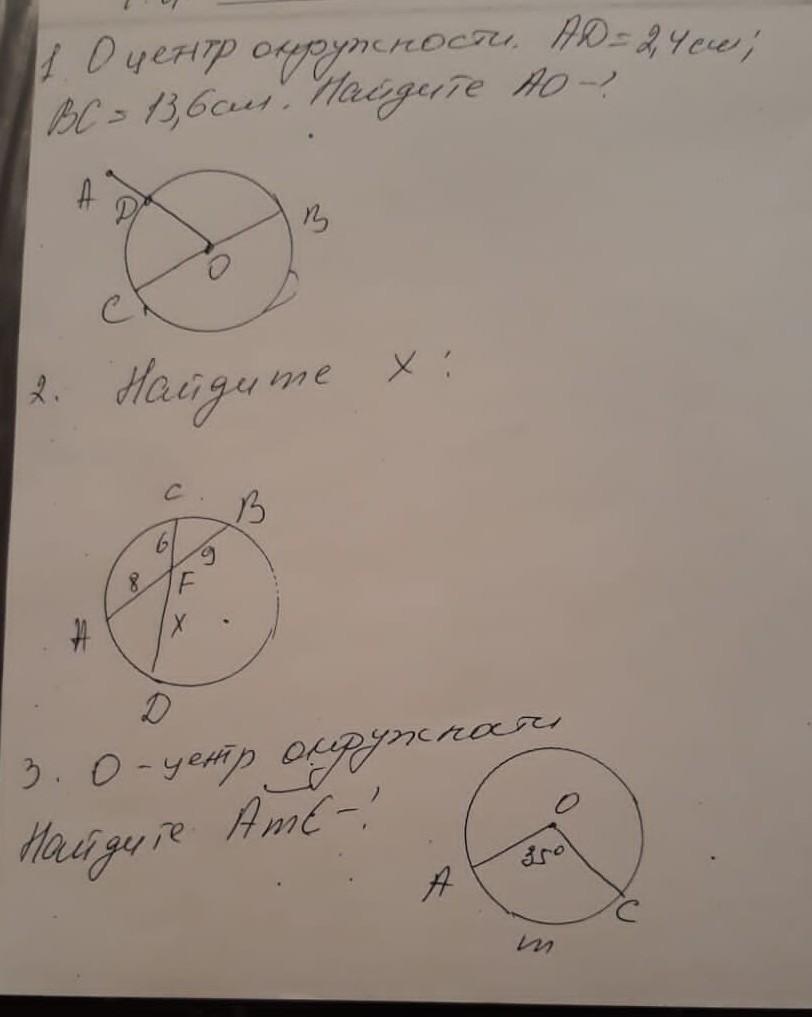 1. О центр окружности. АD=2,4см;
BC = 13,6см. Найдите АО-?
А
D
B
O
C
2. Найдите х :
C
B
6
9
8
F
A
X
D
3. О-центр окружности
Найдите АmC-?
O
35°
A
C
m